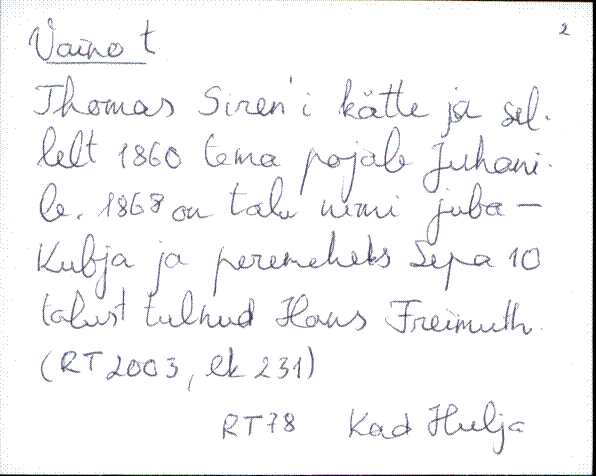 2
Vaino t
Thomas Siren'i kätte ja sel-
lelt 1860 tema pojale Juhani-
le. 1868 on talu nimi juba –
Kubja ja peremeheks Sepa 10
talust tulnud Hans Freimuth.
(RT 2003, lk 231)
RT78 Kad Hulja